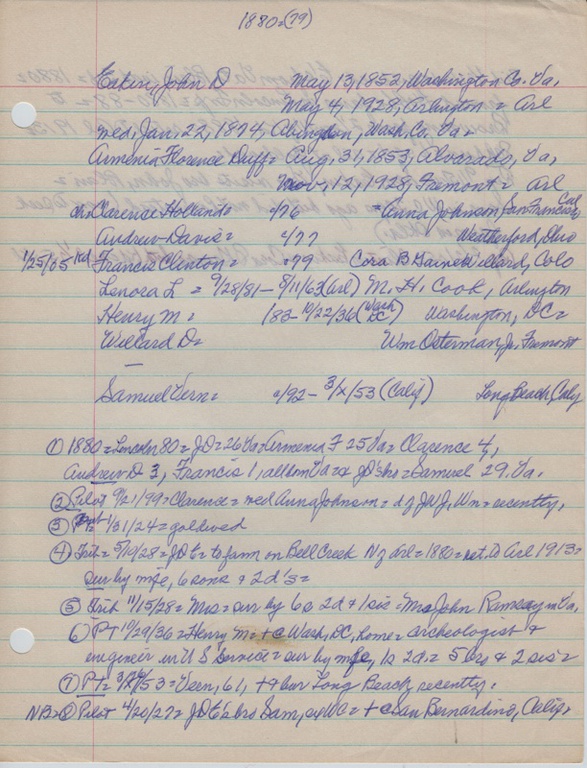 1880=(79)
Eaken, John D May 13, 1852, Washington Co. Va,
May 4, 1928, Arlington = Arl
wed, Jan, 22, 1874, Abingdon, Wash. Co. Va=
Armenia Florence Duff= Aug, 31, 1853, Alvarado, Va,
Nov, 12, 1928, Fremont = Arl
ch, Clarence Holland= c/76 =Anna Johnson, San Francisco Cal
Andrew Davis= c/77 Weatherford, Ohio
1/25/05 wed Francis Clinton= c/79 Cora B Willard, Colo
Lenora L = 9/28/81 - 8/11/63 (Arl) M. H. Cook, Arlington
Henry M= /83-10/22/36 (Wash DC) Washington, DC=
Willard D= Wm Osterman Jr, Fremont
—
Samuel Vern= c/92 - 3/x/53 (Calif) Long Beach, Calif
① 1880=Lincoln 80=JD=26 Va=Armenia F 25 Va= Clarence 4,
Andrew D 3, Francis 1, all born Va= JD's bro=Samuel 29. Va.
② Pilot 9/21/99=Clarence= wed Anna Johnson= d of Wm= recently,
③ 1/31/24=gold wed
④ Trib= 5/10/28=JDE= to farm on Bell Creek N of Arl=1880=ret, to Arl 1913=
sur by wife, 6 sons & 2 d's=
⑤ Trib 11/15/28= Mrs= sur by 6s 2d & 1 sis= Mrs John Ramsay in Va,
⑥ PT 10/29/36=Henry M=+@Wash, DC, home= archeologist &
engineer in U S Service= sur by wife, 1s 2d= 5 bro & 2 sis=
⑦ PT= 3/24/53=Veen, 61, + & bur Long Beach recently.
NB= ⑧ Pilot 4/20/27= JDE's bro Sam, = +@San Bernardino, Calif,